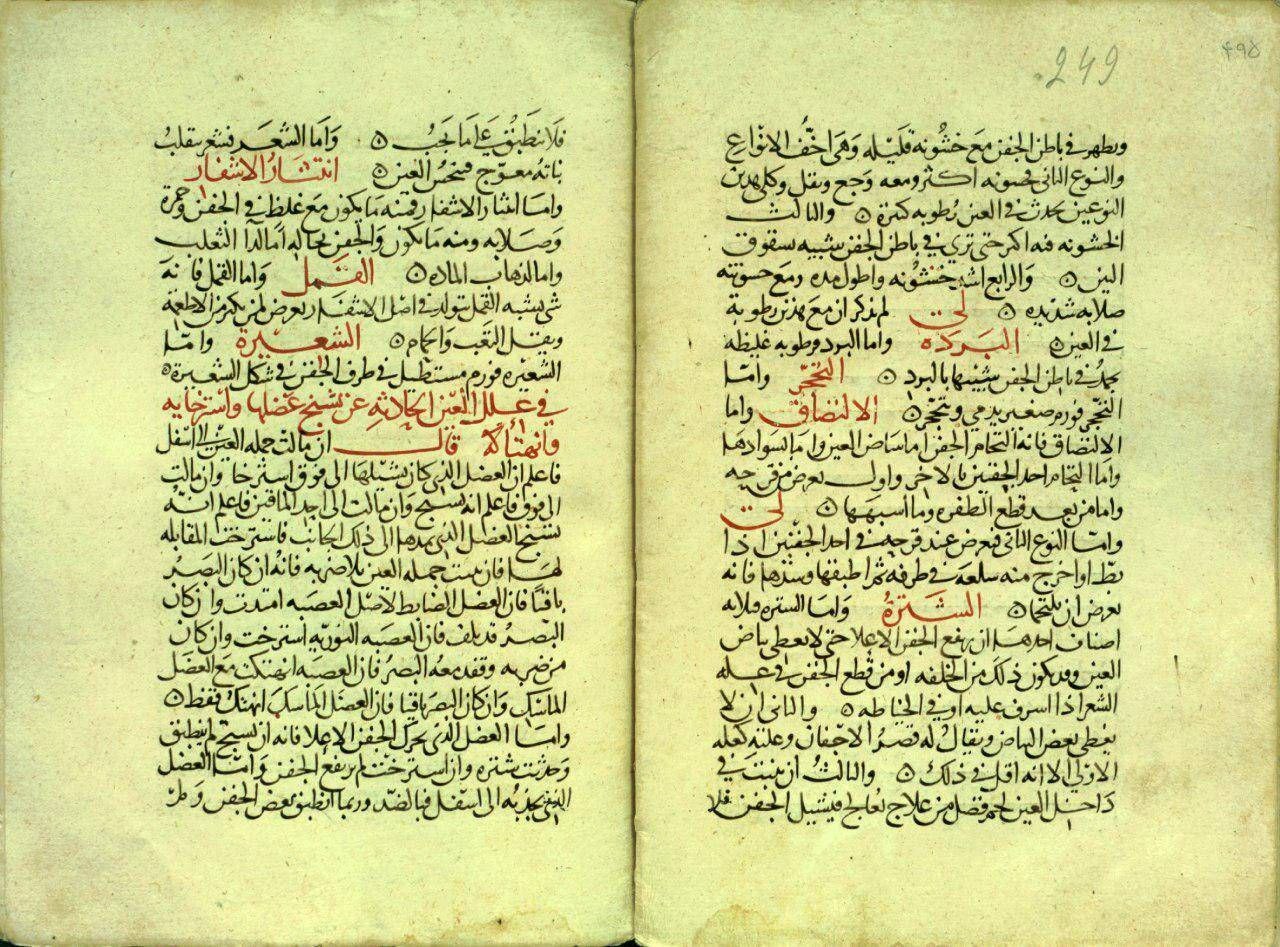 249
۴۹۵
ويظهر في باطن الجفن مع خشونه قليله وهى اخف الانواع
والنوع الثانى خشونه اكثر ومعه وجع وثقل وكلى هدين
النوعين يحدث في العين رطوبه كثيرة ٥ والثالث
الخشونه فيه اكثر حتى ترى في باطن الجفن شبيه بشقوق
التين ٥ والرابع اشد خشونه واطول مده ومع خشونته
صلابه شديده ٥ لى لم يذكر ان مع هذين رطوبة
في العين ٥ البرده واما البرد فرطوبه غليظه
يجمد في باطن الجفن شبيها بالبرد ٥ التحجر واما
التحجر فورم صغير يدمى ويتحجر ٥ الالتصاق واما
الالتصاق فانه التحام الجفن اما ببياض العين واما بسوادها
واما التحام احد الجفنين بالاخر والاول يعرض من قرحه
واما من بعد قطع الظفره وما اشبهها ٥ لى
واما النوع الثانى فيعرض عند قرحه في احد الجفنين اذا
بط او اخرج منه سلعه في طرفه ثم اطبقها وشدها فانه
يعرض ان يلتحما ٥ الشترة واما الشتره فثلاثه
اصناف احدها ان يرتفع الجفن الاعلا حتى لا يغطى بياض
العين وقد يكون ذلك من الخلقه او من قطع الجفن في علة
الشعر اذا اسرف عليه او في الخياطه ٥ والثانى ان لا
يغطى بعض البياض ويقال له قصر الاجفان وعلته كعله
الاولى الا انه اقل في ذلك ٥ والثالث ان ينبت في
داخل العين لحم فضل من علاج يعالج فيشيل الجفن فلا
فلا ينطبق على ما يجب ٥ واما الشعر فشعر ينقلب
نباته معوج فينخس العين ٥ انتثار الاشفار
واما انتثار الاشفار فمنه ما يكون مع غلظ في الجفن وحمرة
وصلابه ومنه ما يكون والجفن بحاله اما لدا الثعلب
واما لذهاب الماده ٥ القمل واما القمل فانه
شى يشبه القمل يتولد في اصل الاشفار يعرض لمن يكثر من الاطعمة
ويقل التعب والحمام ٥ الشعيرة واما
الشعيره فورم مستطيل في طرف الجفن في شكل الشعيرة ٥
في علل العين الحادثه عن تشنج عضلها واسترخايه
وانهتاكه قال ان مالت جمله العين الى اسفل
فاعلم ان العضل الذى كان يشيلها الى فوق استرخا وان مالت
الى فوق فاعلم انه تشنج وان مالت الى احد الماقين فاعلم انه
تشنج العضل الذى يمدها الى ذلك الجانب فاسترخت المقابله
لها فان نتت جمله العين بلا ضربه فانه ان كان البصر
باقيا فان العضل الضابط لاصل العصبه امتدت وان كان
البصر قد تلف فان العصبه النوريه استرخت وان كان
من ضربه وفقد معه البصر فان العصبه انهتكت مع العضل
الماسك وان كان البصر باقيا فان العضل الماسك انهتك فقط ٥
واما العضل الذى يحرك الجفن الاعلا فانه ان تشنج لم ينطبق
وحدثت شتره وان استرخت لم يرتفع الجفن واما العضل
الذى يجذبه الى اسفل فبالضد وربما انطبق بعض الجفن وطر